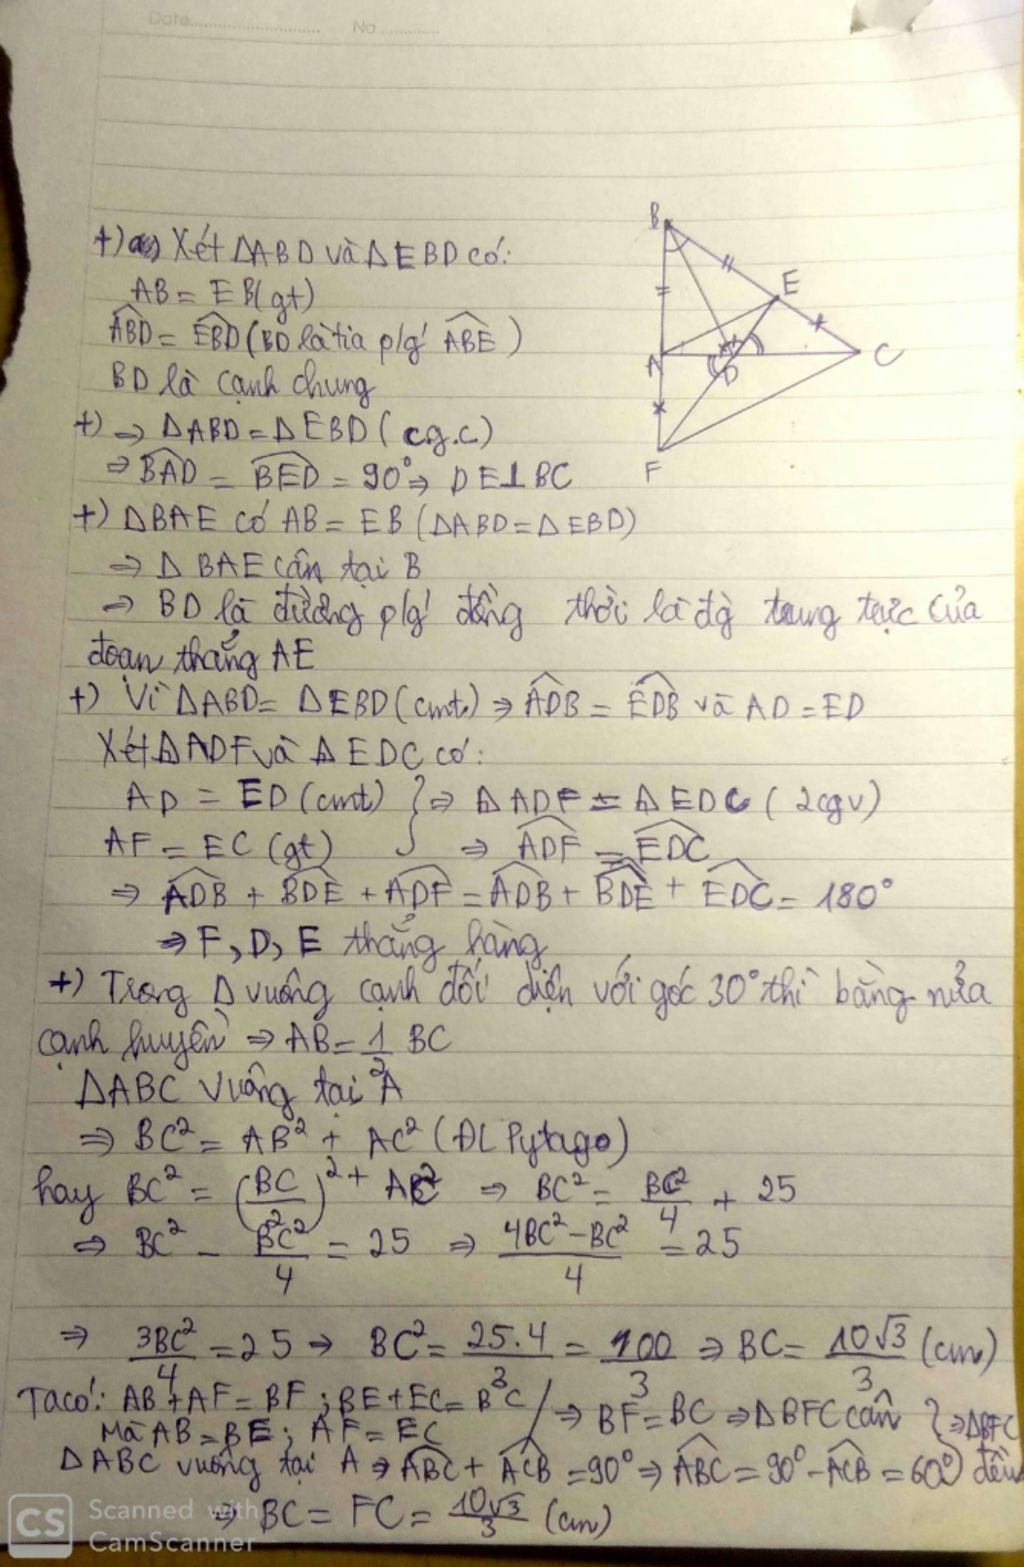 Date.............................. No...............
+) a) Xét ΔABD và ΔEBD có:
AB = EB (gt)
\widehat{ABD} = \widehat{EBD} (BD là tia p/g' \widehat{ABE})
BD là cạnh chung
+) ⇒ ΔABD = ΔEBD (cg.c)
⇒ \widehat{BAD} = \widehat{BED} = 90° ⇒ DE⊥BC
+) ΔBAE có AB = EB (ΔABD = ΔEBD)
⇒ Δ BAE cân tại B
⇒ BD là đường p/g' đồng thời là đg trung trực của
đoạn thẳng AE
+) Vì ΔABD = ΔEBD (cmt) ⇒ \widehat{ADB} = \widehat{EDB} và AD = ED
Xét ΔADF và ΔEDC có:
AD = ED (cmt) } ⇒ ΔADF = ΔEDC (2cgv)
AF = EC (gt) ⇒ \widehat{ADF} = \widehat{EDC}
⇒ \widehat{ADB} + \widehat{BDE} + \widehat{ADF} = \widehat{ADB} + \widehat{BDE} + \widehat{EDC} = 180°
⇒ F, D, E thẳng hàng
+) Trong Δ vuông cạnh đối diện với góc 30° thì bằng nửa
cạnh huyền ⇒ AB = 1/2 BC
ΔABC vuông tại A
⇒ BC² = AB² + AC² (ĐL Pytago)
hay BC² = (BC/2)² + AC² ⇒ BC² = BC²/4 + 25
⇒ BC² - BC²/4 = 25 ⇒ (4BC² - BC²)/4 = 25
⇒ 3BC²/4 = 25 ⇒ BC² = 25.4/3 = 100/3 ⇒ BC = 10√3/3 (cm)
Ta có: AB + AF = BF ; BE + EC = BC / ⇒ BF = BC ⇒ ΔBFC cân } ⇒ ΔBFC
Mà AB = BE ; AF = EC
ΔABC vuông tại A ⇒ \widehat{ABC} + \widehat{ACB} = 90° ⇒ \widehat{ABC} = 90° - \widehat{ACB} = 60° đều
⇒ BC = FC = 10√3/3 (cm)
B
E
A
D
C
F
CS Scanned with
CamScanner